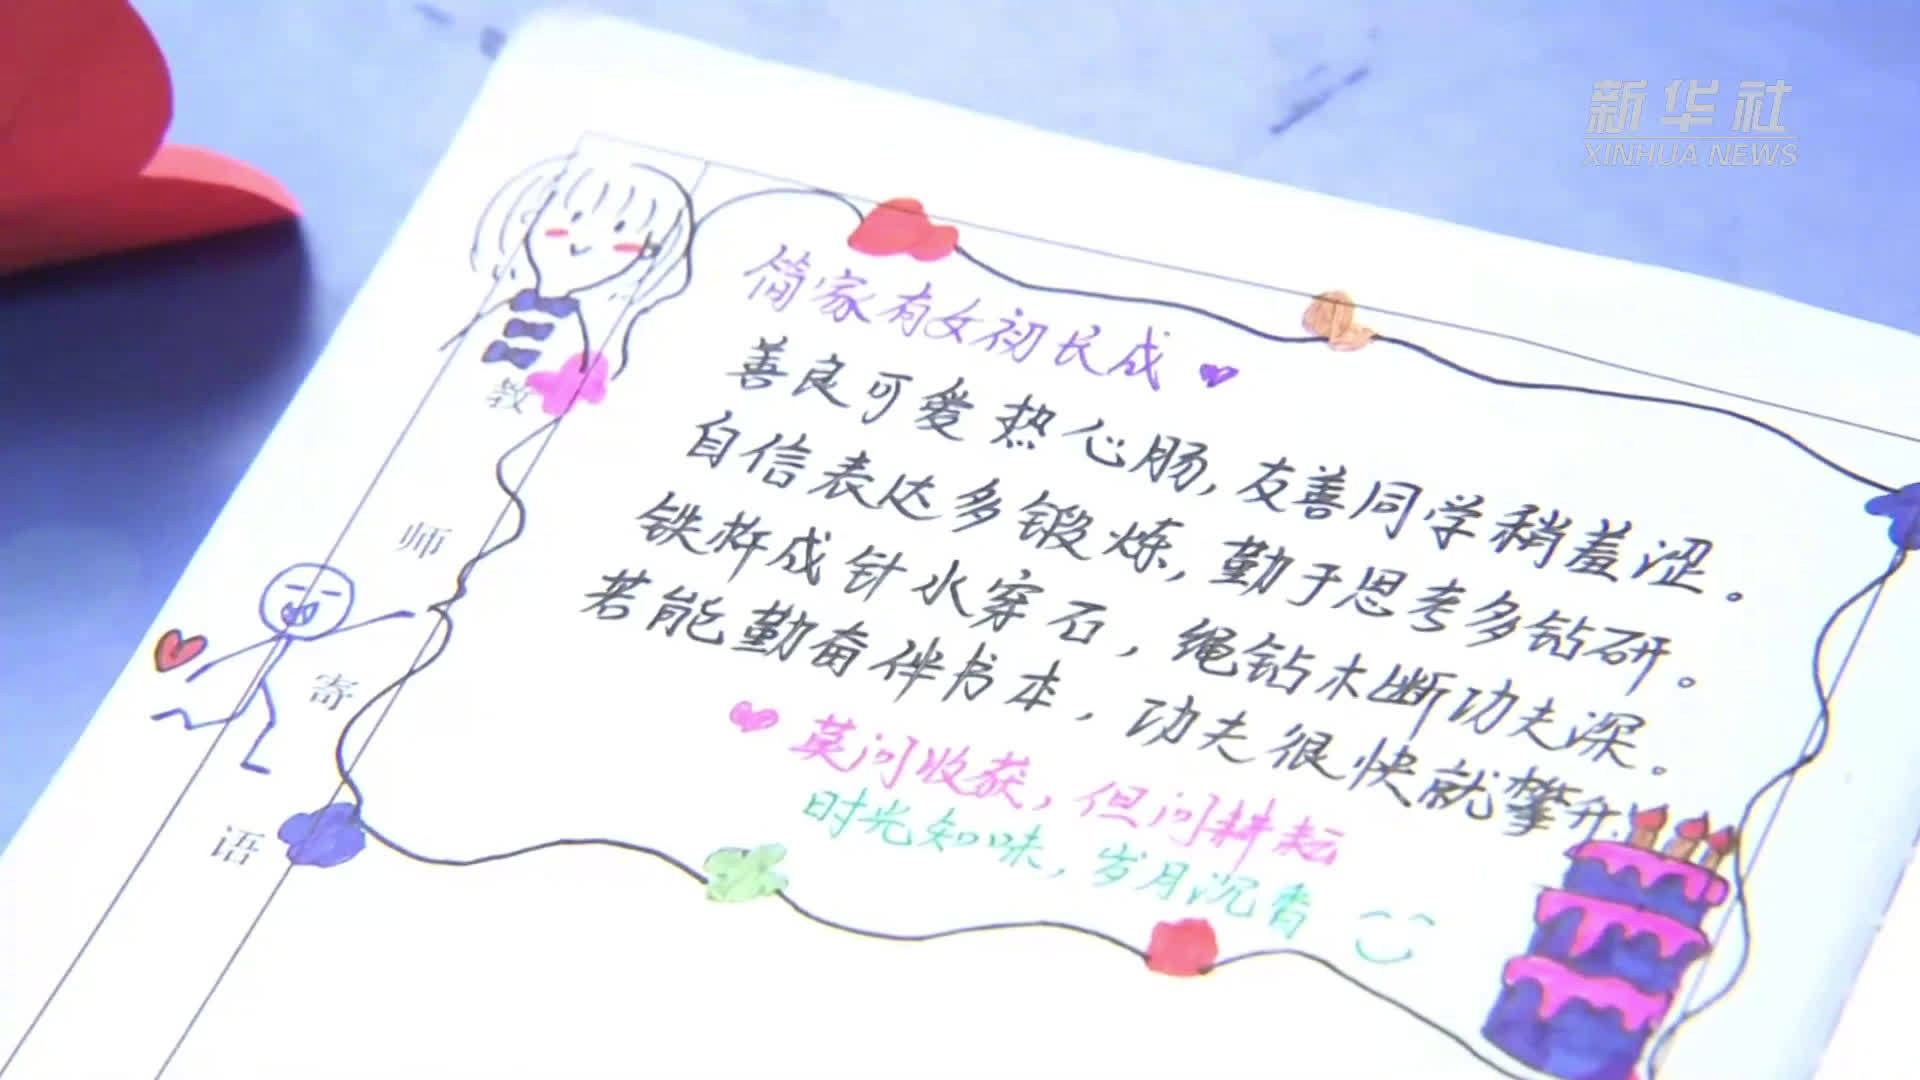 新华社
XINHUA NEWS
教师寄语
简家有女初长成
善良可爱热心肠,友善同学稍羞涩。
自信表达多锻炼,勤于思考多钻研。
铁杵成针水穿石,绳钻木断功夫深。
若能勤奋伴书本,功夫很快就攀升!
莫问收获,但问耕耘
时光知味,岁月沉香